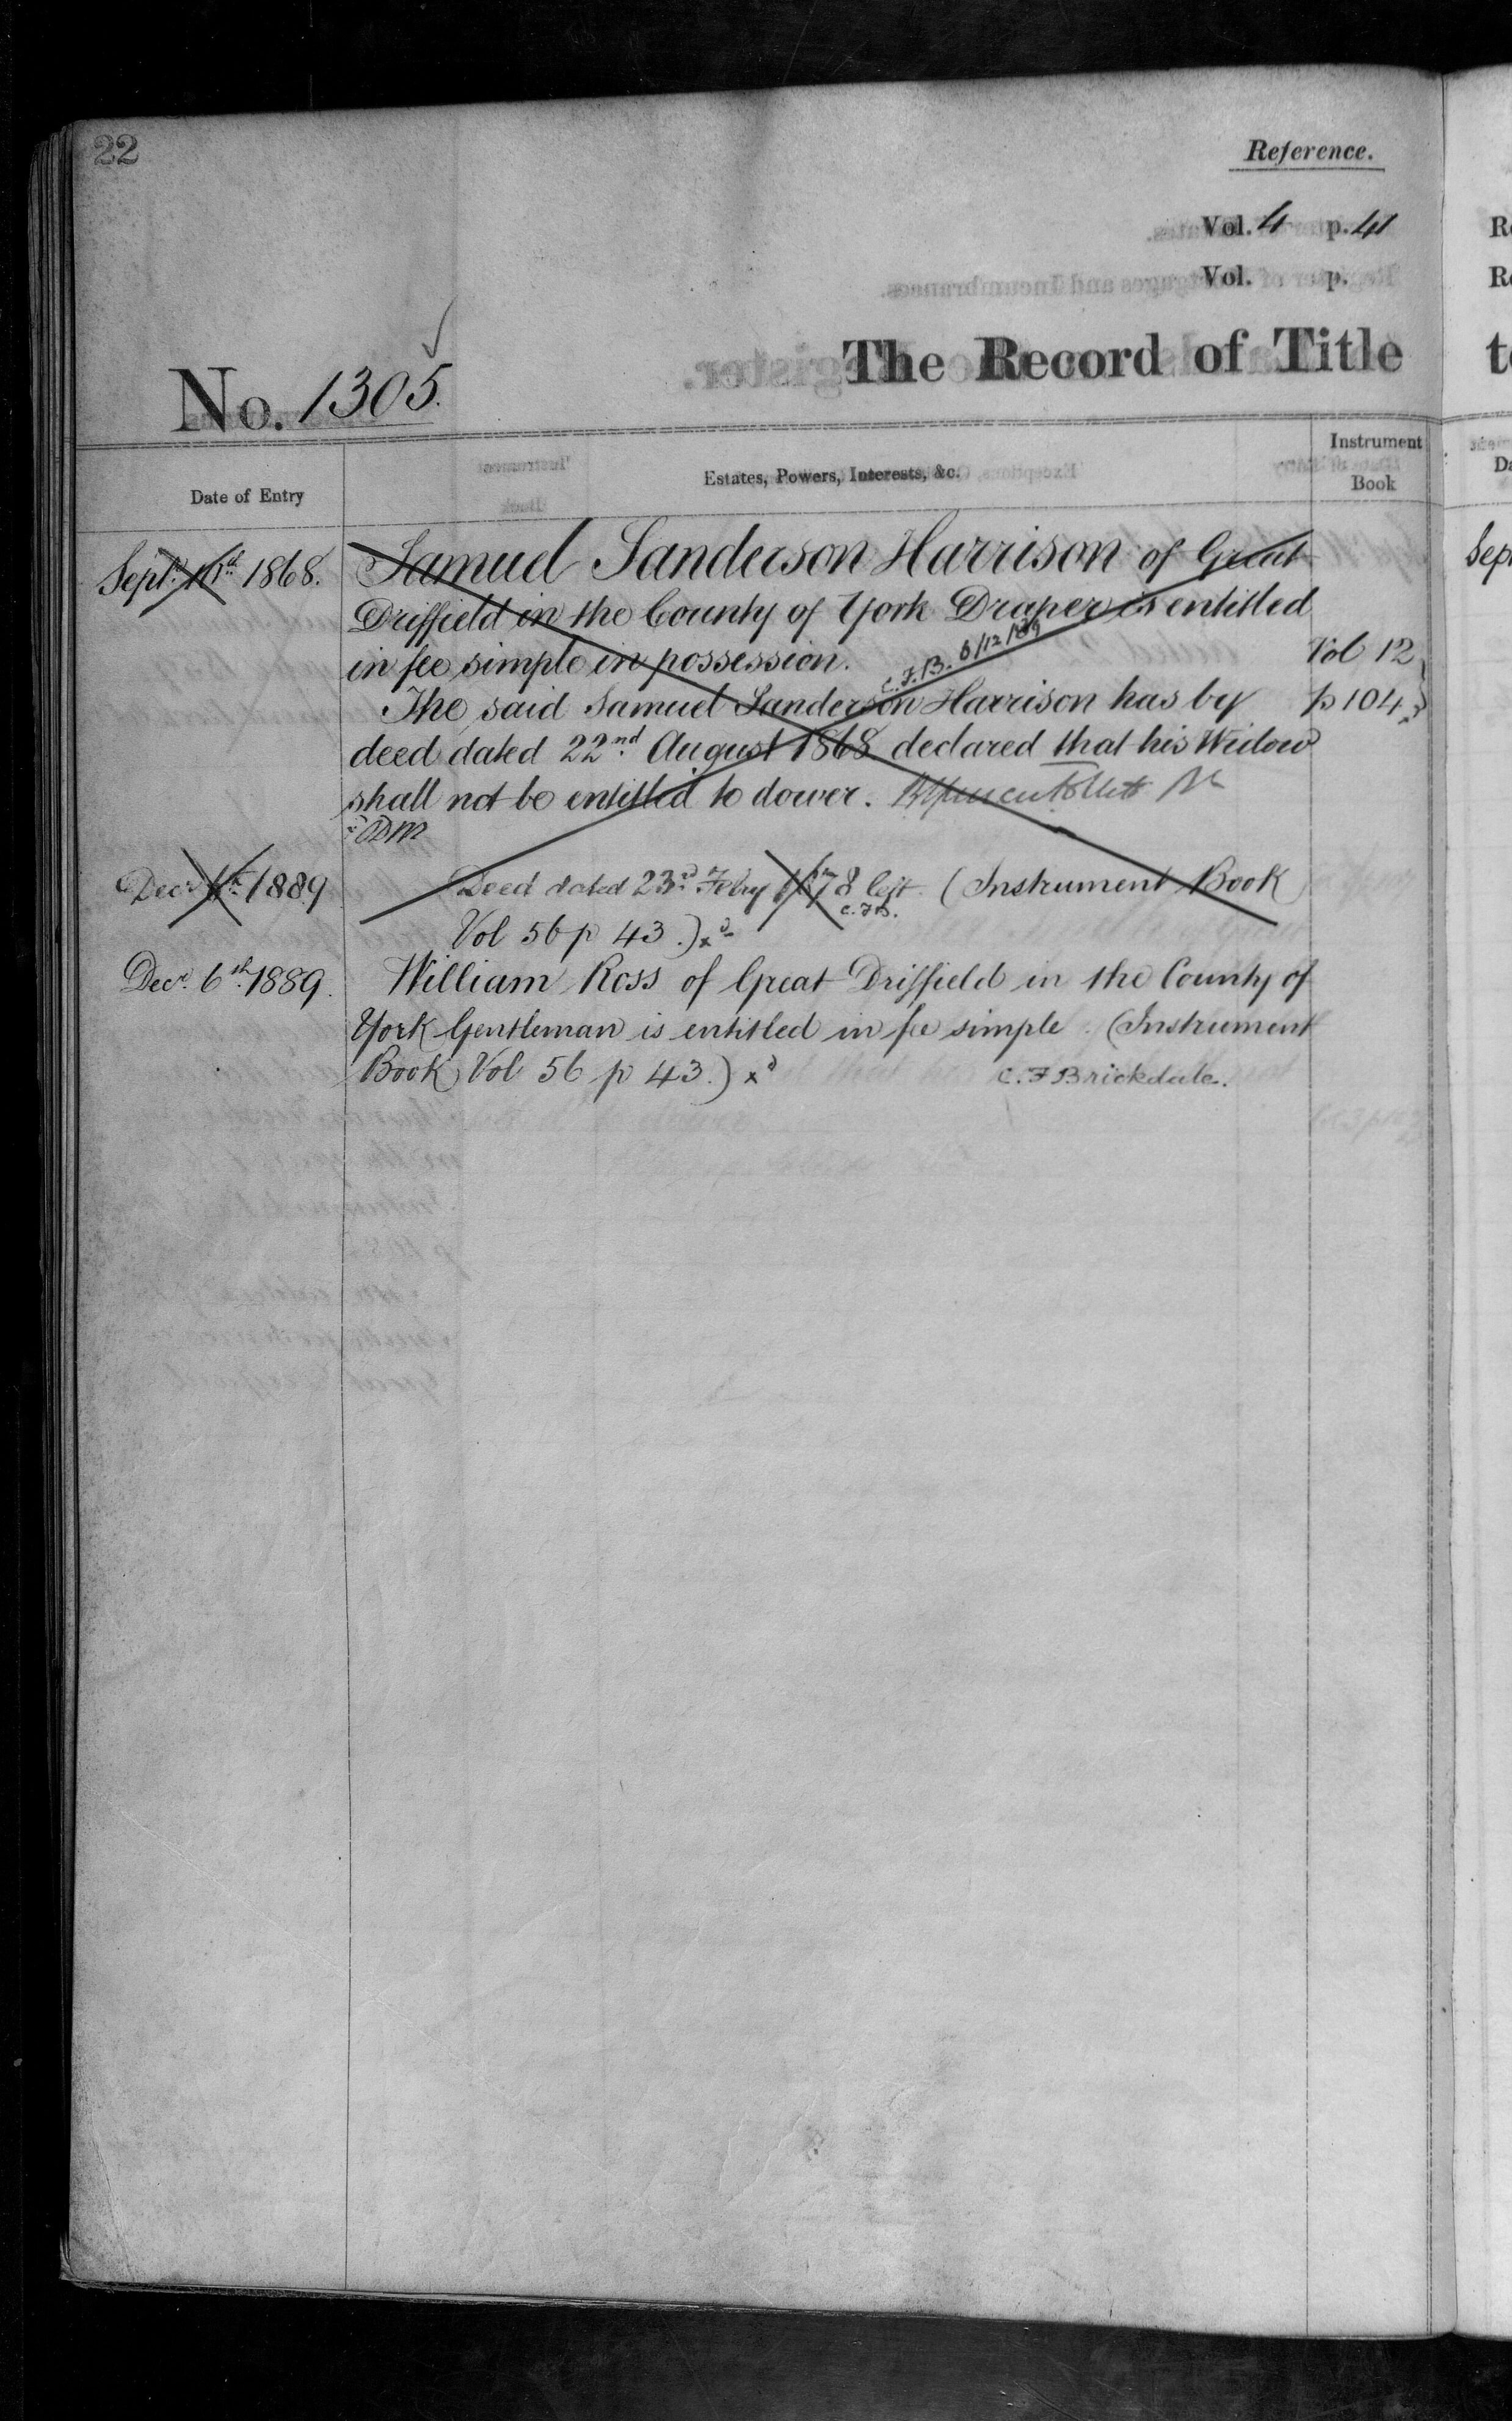 22
Reference.
Vol. 4 p. 41
Vol. p.
The Record of Title
No. 1305.
Date of Entry
Estates, Powers, Interests, &c.
Instrument
Book
Sept. 1868. Samuel Sanderson Harrison of Great
Driffield in the County of York Draper is entitled
in fee simple in possession. Vol 12
C.F.B. 6/12/89
The said Samuel Sanderson Harrison has by p 104
deed dated 22nd August 1868 declared that his Widow
shall not be entitled to dower.
Decr. 1889 Deed dated 23rd Febry 1878 left. (Instrument Book
C.F.B.
Vol 56 p 43.)
Decr. 6th 1889. William Ross of Great Driffield in the County of
York Gentleman is entitled in fee simple. (Instrument
Book Vol 56 p 43.) C.F Brickdale.